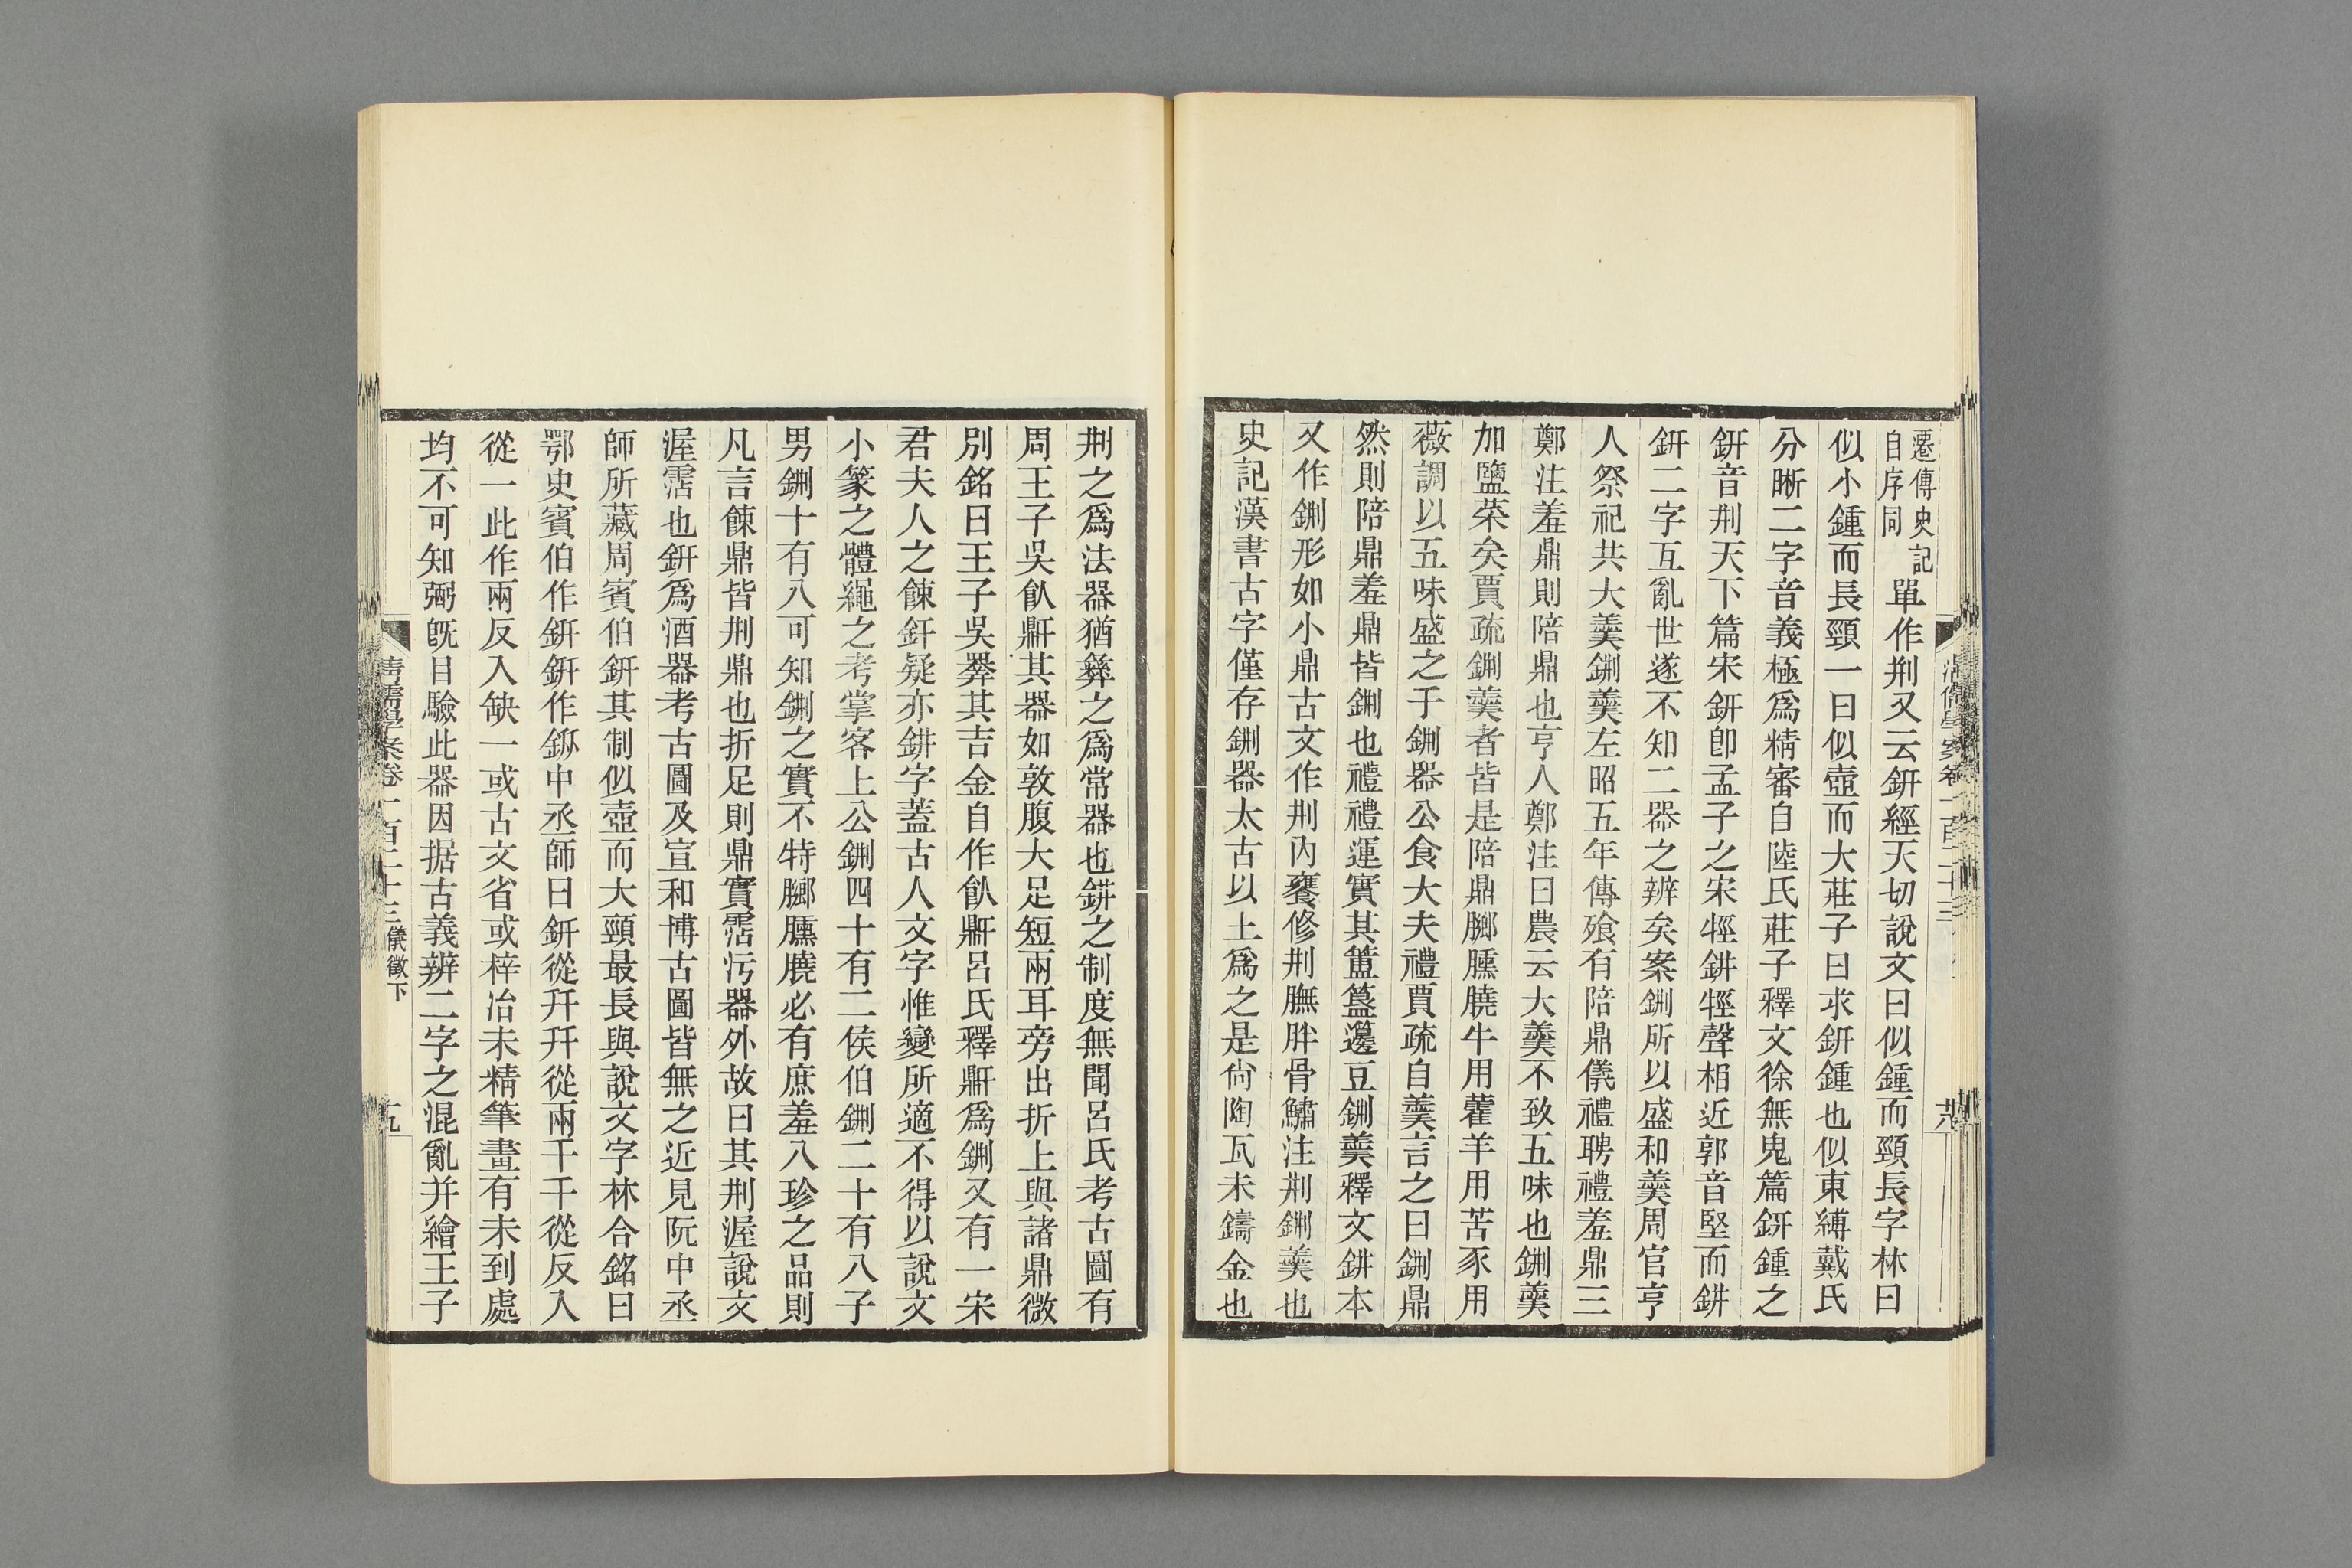 遷傳史記
自序同
單作㓝又云鈃經天切說文曰似鍾而頸長字林曰
似小鍾而長頸一曰似壺而大莊子曰求鈃鍾也似東縛戴氏
分晰二字音義極爲精審自陸氏莊子釋文徐無鬼篇鈃鍾之
鈃音㓝天下篇宋鈃卽孟子之宋牼鉼牼聲相近郭音堅而鉼
鈃二字互亂世遂不知二器之辨矣案鉶所以盛和羹周官亨
人祭祀共大羹鉶羹左昭五年傳飧有陪鼎儀禮聘禮羞鼎三
鄭注羞鼎則陪鼎也亨人鄭注曰農云大羹不致五味也鉶羹
加鹽菜矣賈疏鉶羹者皆是陪鼎膷臐膮牛用藿羊用苦豕用
薇調以五味盛之于鉶器公食大夫禮賈疏自羹言之曰鉶鼎
然則陪鼎羞鼎皆鉶也禮禮運實其簠簋籩豆鉶羹釋文鉼本
又作鉶形如小鼎古文作㓝內饔修㓝膴胖骨鱐注㓝鉶羹也
史記漢書古字僅存鉶器太古以土爲之是尙陶瓦未鑄金也
㓝之爲法器猶彝之爲常器也鉼之制度無聞呂氏考古圖有
周王子吳飤鼾其器如敦腹大足短兩耳旁出折上與諸鼎微
別銘曰王子吳𢍰其吉金自作飤鼾呂氏釋鼾爲鉶又有一宋
君夫人之餗釪疑亦鉼字蓋古人文字惟變所適不得以說文
小篆之體繩之考掌客上公鉶四十有二侯伯鉶二十有八子
男鉶十有八可知鉶之實不特膷臐膮必有庶羞八珍之品則
凡言餗鼎皆㓝鼎也折足則鼎實霑污器外故曰其㓝渥說文
渥霑也鈃爲酒器考古圖及宣和博古圖皆無之近見阮中丞
師所藏周賓伯鈃其制似壺而大頸最長與說文字林合銘曰
鄂史賓伯作鈃鈃作中丞師曰鈃從幵幵從兩干干從反入
從一此作兩反入缺一或古文省或梓冶未精筆畫有未到處
均不可知弼旣目驗此器因据古義辨二字之混亂并繪王子
清儒學案卷一百二十三儀徵下